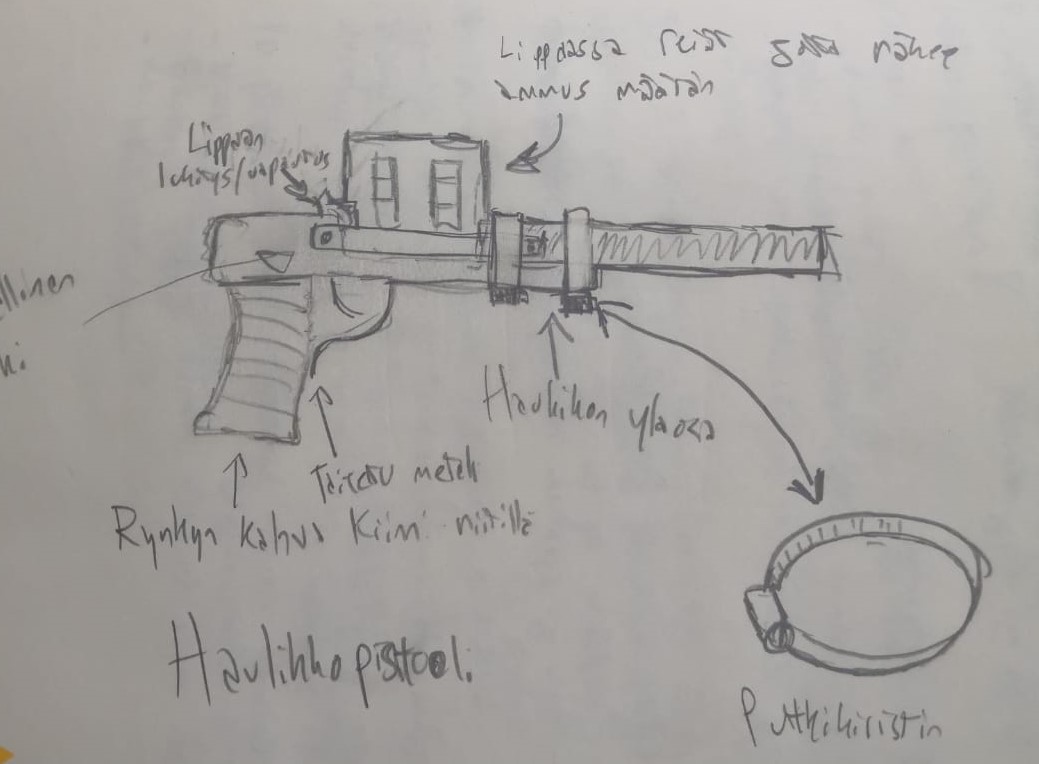 Lippaassa reiät jotta näkee
ammus määrän
Lippaan
lukitys/vapautus
llinen
ki
Haulikon yläosa
Taitettu metalli
Rynkyn kahva kiini niitillä
Haulikkopistooli
Putkikiristin